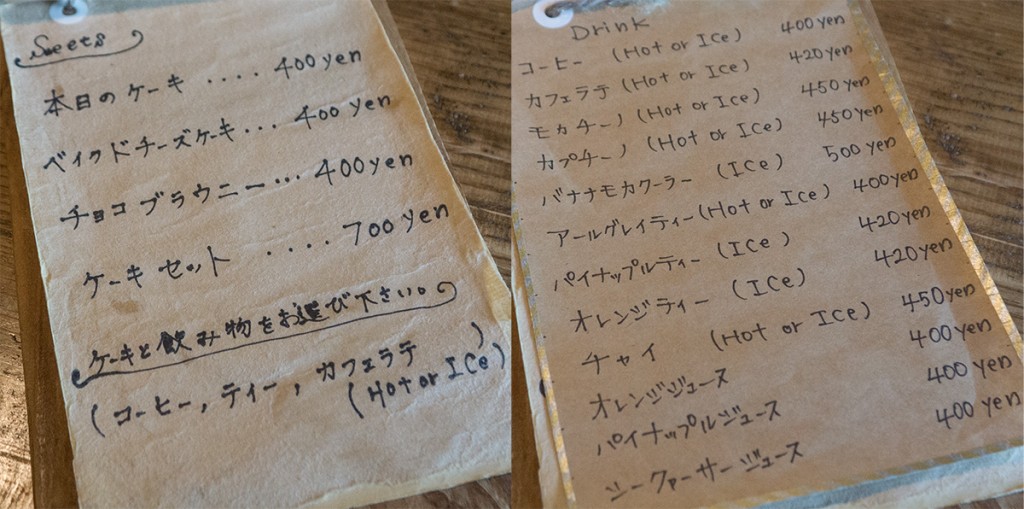 Sweets
本日のケーキ ････ 400yen
ベイクドチーズケーキ･･･ 400yen
チョコブラウニー･･･ 400yen
ケーキセット ････ 700yen
ケーキと飲み物をお選び下さい。
(コーヒー, ティー, カフェラテ)
(Hot or ICe)
Drink
コーヒー (Hot or Ice) 400yen
カフェラテ (Hot or Ice) 420yen
モカチーノ (Hot or Ice) 450yen
カプチーノ (Hot or ICe) 450yen
バナナモカクーラー (ICe) 500yen
アールグレイティー (Hot or ICe) 400yen
パイナップルティー (ICe) 420yen
オレンジティー (ICe) 420yen
チャイ (Hot or ICe) 450yen
オレンジジュース 400yen
パイナップルジュース 400yen
シークァーサージュース 400yen